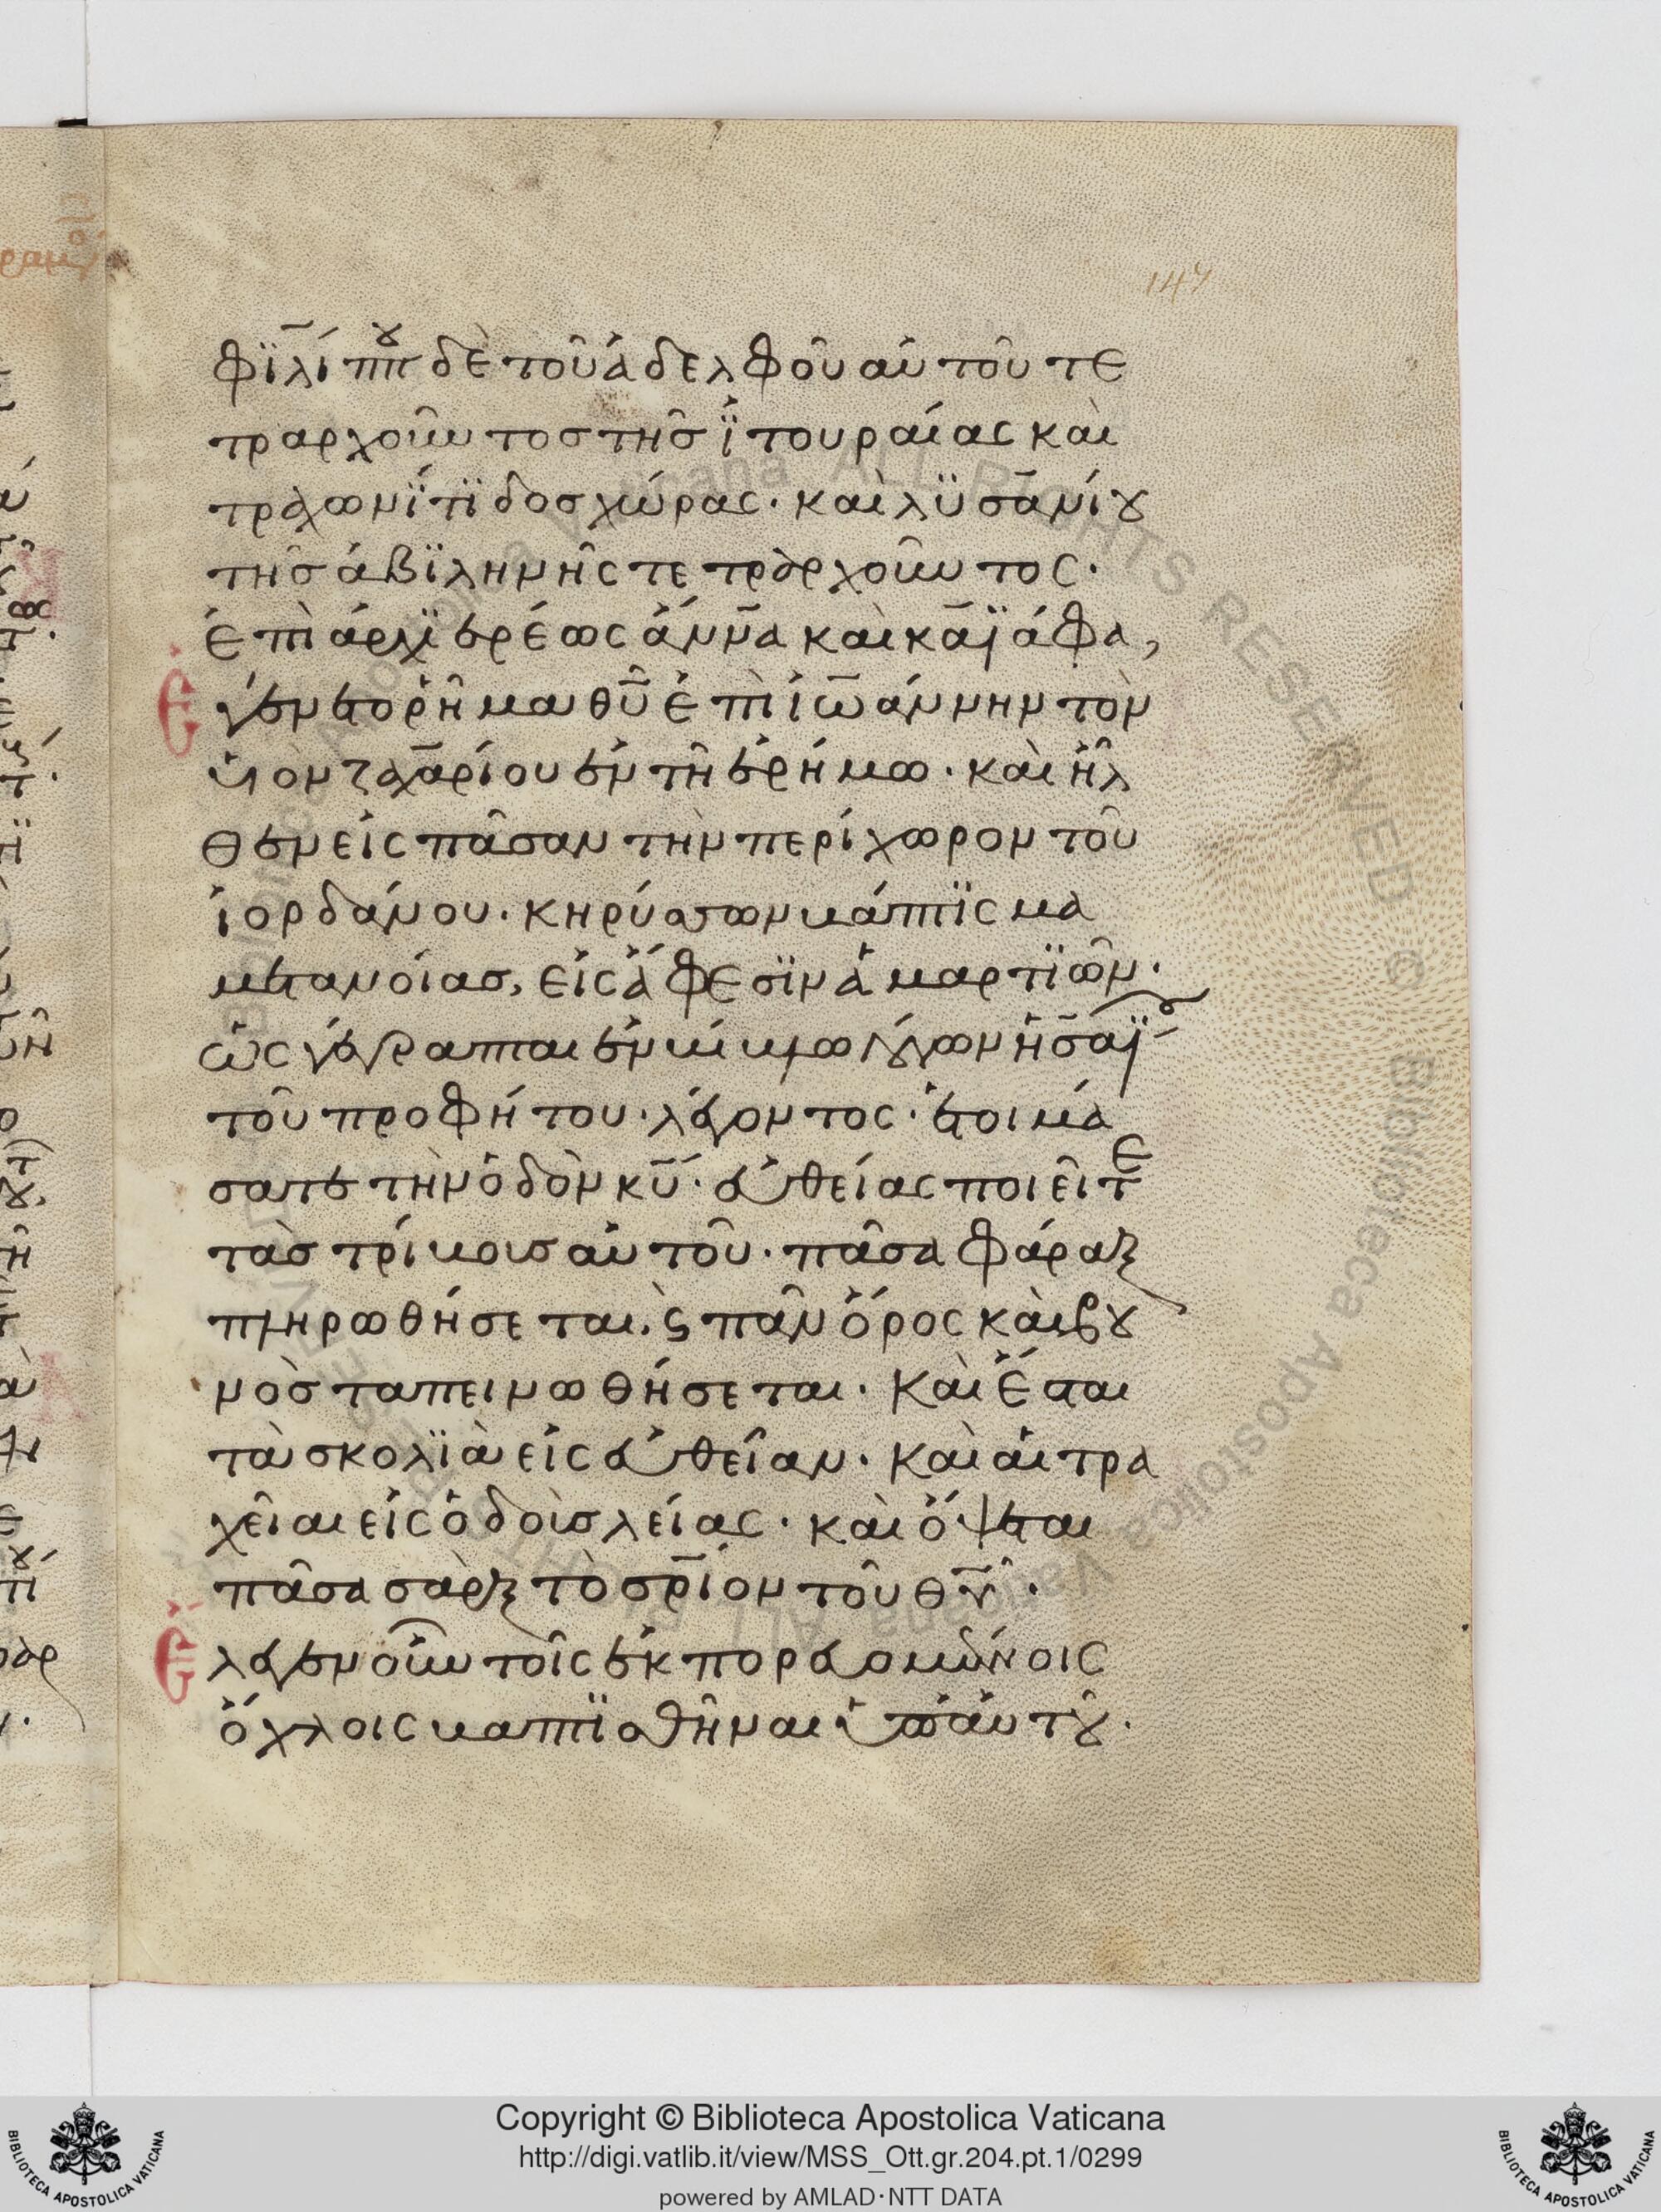 147
φϊλίππου δὲ τοῦ ἀδελφοῦ αὐτοῦ τε
τραρχοῦντος τῆς ϊτουραίας καὶ
τραχωνίτϊδος χώρας· καὶ λϋσανίου
τῆς ἀβϊληνῆς τετραρχοῦντος·
ἐπὶ ἀρχϊερέως ἄννα καὶ καϊάφα,
Ἐγένετο ῥῆμα θῡ ἐπὶ ἰωάννην τὸν
υἱὸν ζαχαρίου ἐν τῆ ἐρήμω· καὶ ἦλ
θεν εἰς πᾶσαν τὴν περίχωρον τοῦ
ἰορδάνου· κηρύσσων βάπτϊσμα
μετανοίας, εἰς ἄφεσϊν ἁμαρτϊῶν·
ὡς γέγραπται ἐν βίβλω λόγων ἠσαϊ
τοῦ προφήτου· λέγοντος· ἑτοιμά
σατε τὴν ὁδὸν κῡ· εὐθείας ποιεῖτε
τὰς τρίβους αὐτοῦ· πᾶσα φάραξ
πληρωθήσεται. ϛ πᾶν ὄρος καὶ βου
νὸς ταπεινωθήσεται· καὶ ἔσται
τὰ σκολϊὰ εἰς εὐθεῖαν· καὶ αἱ τρα
χεῖαι εἰς ὁδοὺς λείας· καὶ ὄψεται
πᾶσα σὰρξ τὸ σρ̄ίον τοῦ θῡ·
Ἔλεγεν οὖν τοῖς ἐκπορευομένοις
ὄχλοις βαπτϊσθῆναι ὑπ' αὐτοῦ·
Copyright © Biblioteca Apostolica Vaticana
http://digi.vatlib.it/view/MSS_Ott.gr.204.pt.1/0299
powered by AMLAD·NTT DATA
BIBLIOTECA APOSTOLICA VATICANA
BIBLIOTECA APOSTOLICA VATICANA